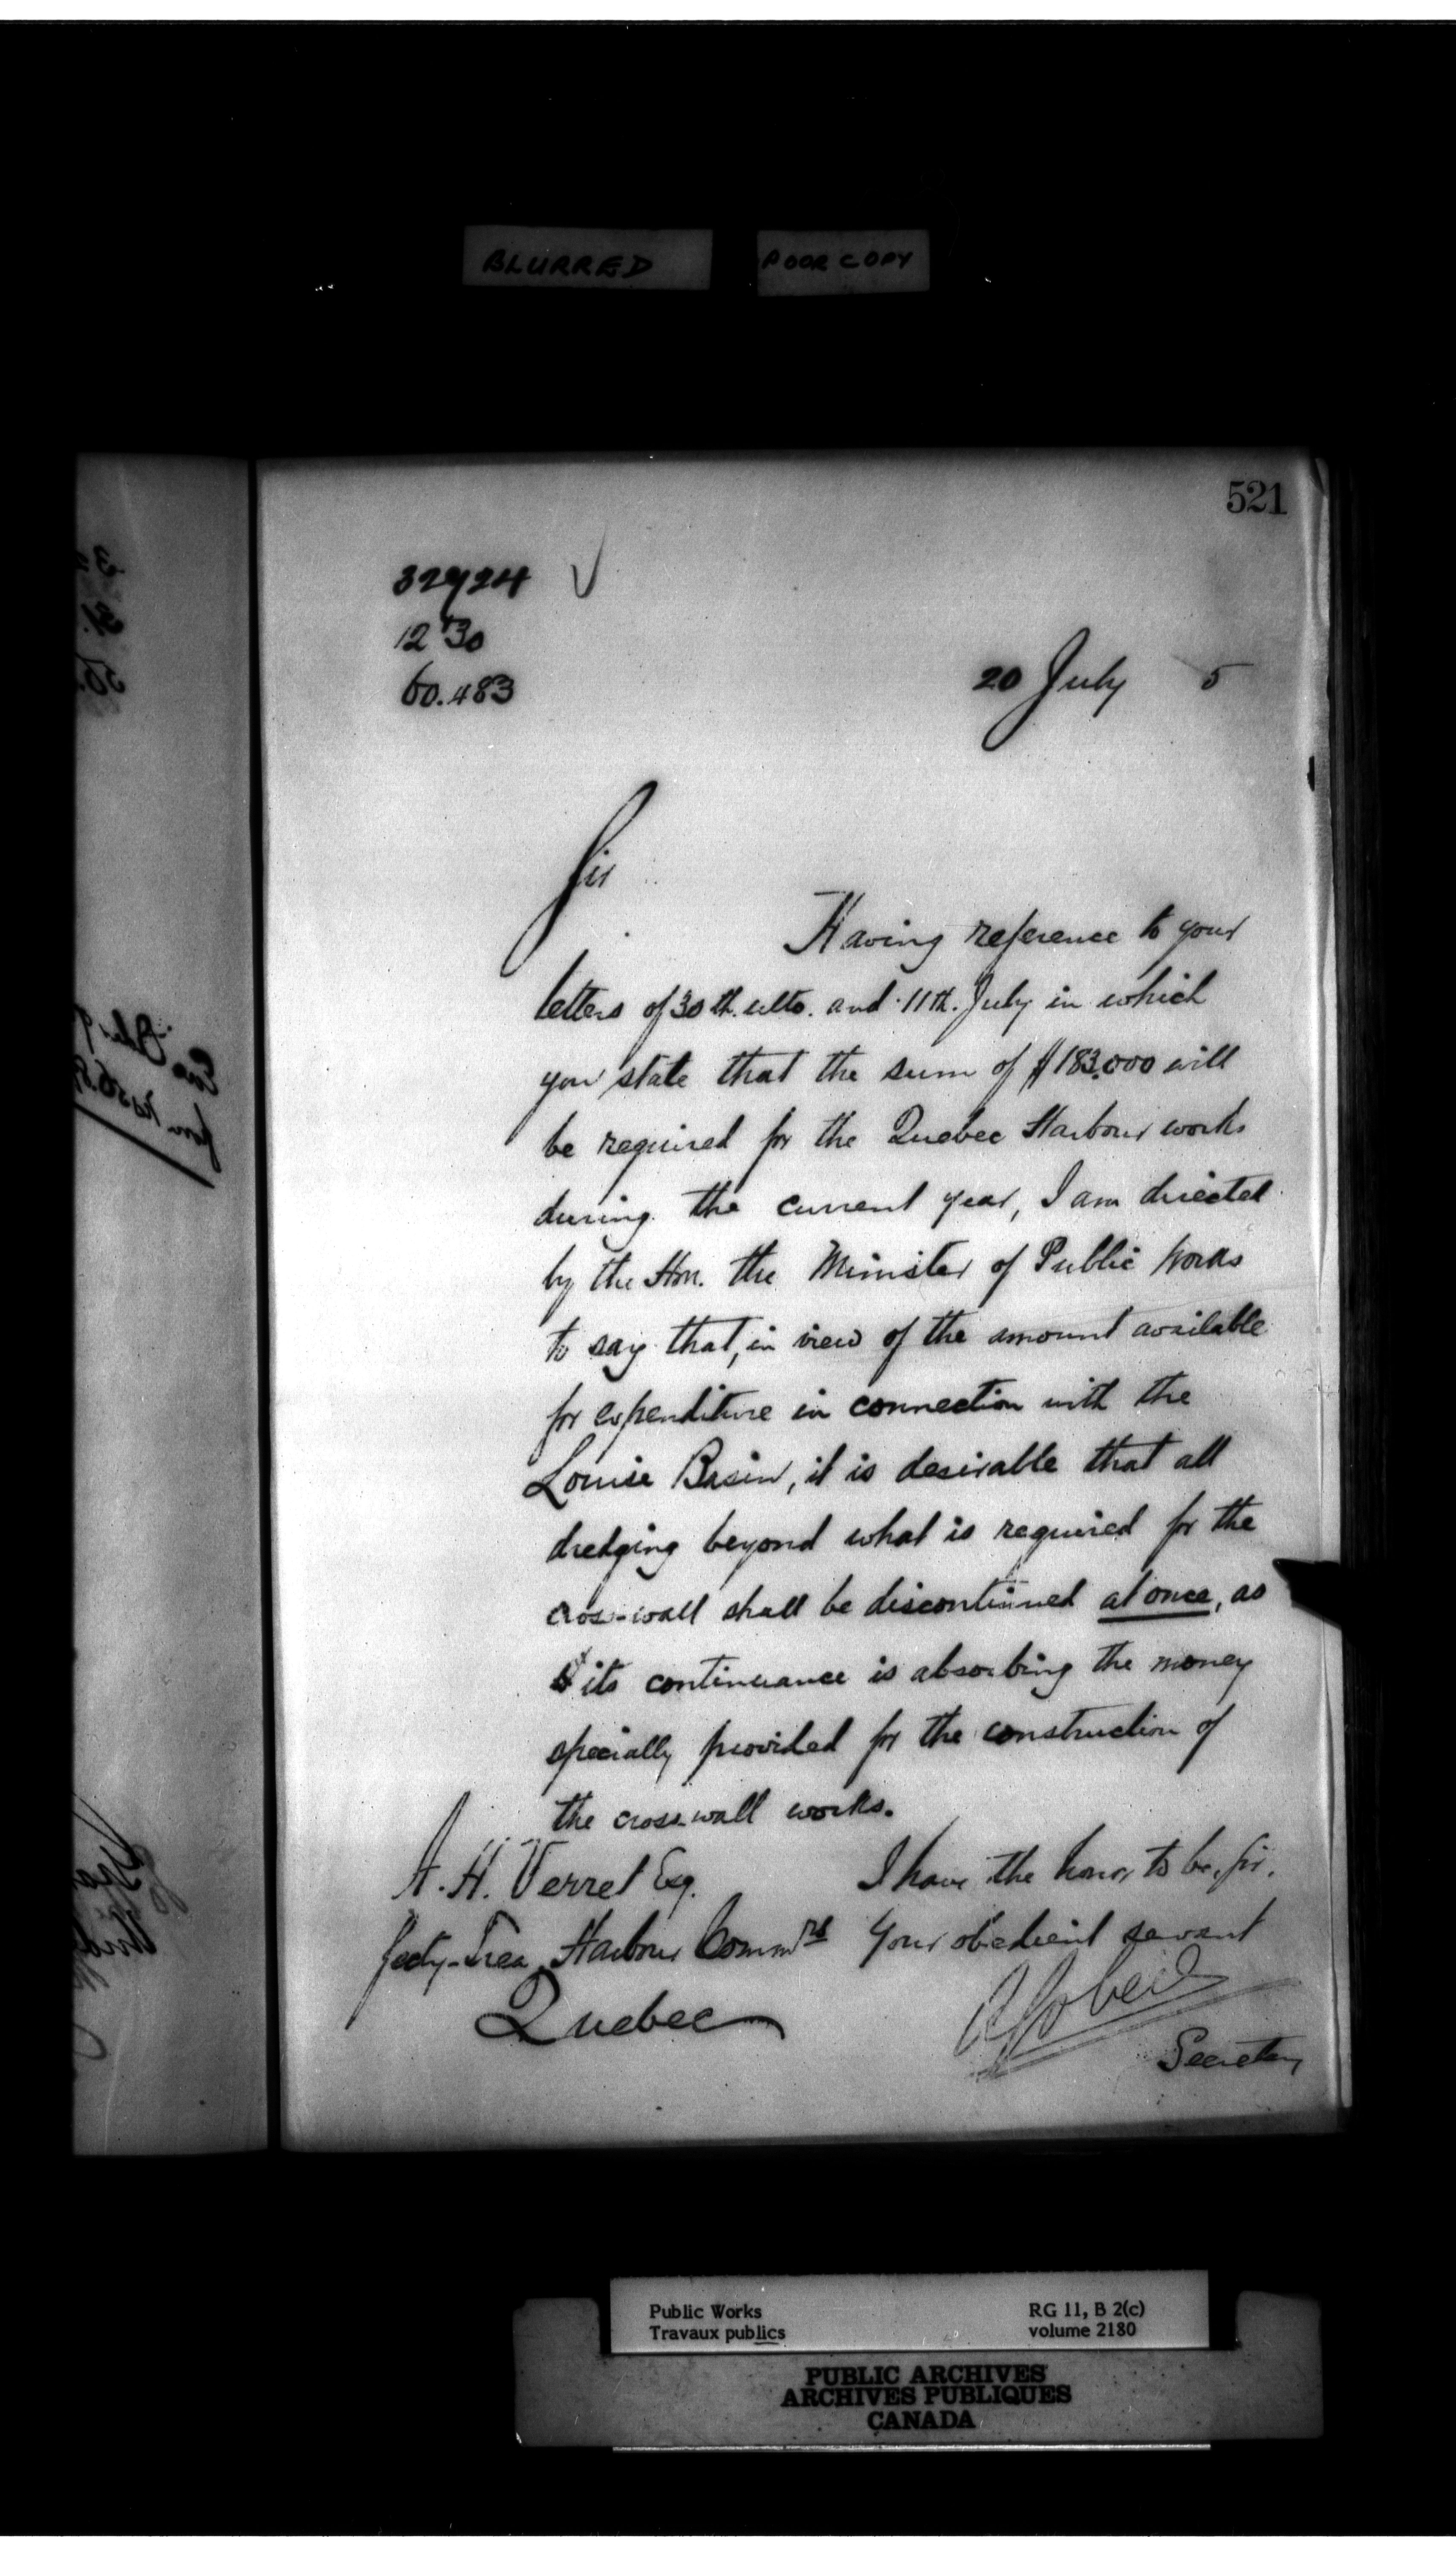 BLURRED POOR COPY
521
32924
1230
60.483
20 July 5
Sir
Having reference to your
letters of 30th. ulto. and 11th. July in which
you state that the sum of $183.000 will
be required for the Quebec Harbour works
during the current year, I am directed
by the Hon. the Minister of Public Works
to say that, in view of the amount available
for expenditure in connection with the
Louise Basin, it is desirable that all
dredging beyond what is required for the
cross-wall shall be discontinued at once, as
its continuance is absorbing the money
specially provided for the construction of
the cross-wall works.
I have the honor to be, Sir,
Your obedient servant
A Gobeil
Secretary
A. H. Verret Esq.
Secty-Trea. Harbour Commrs
Quebec
Public Works
Travaux publics
RG 11, B 2(c)
volume 2180
PUBLIC ARCHIVES
ARCHIVES PUBLIQUES
CANADA